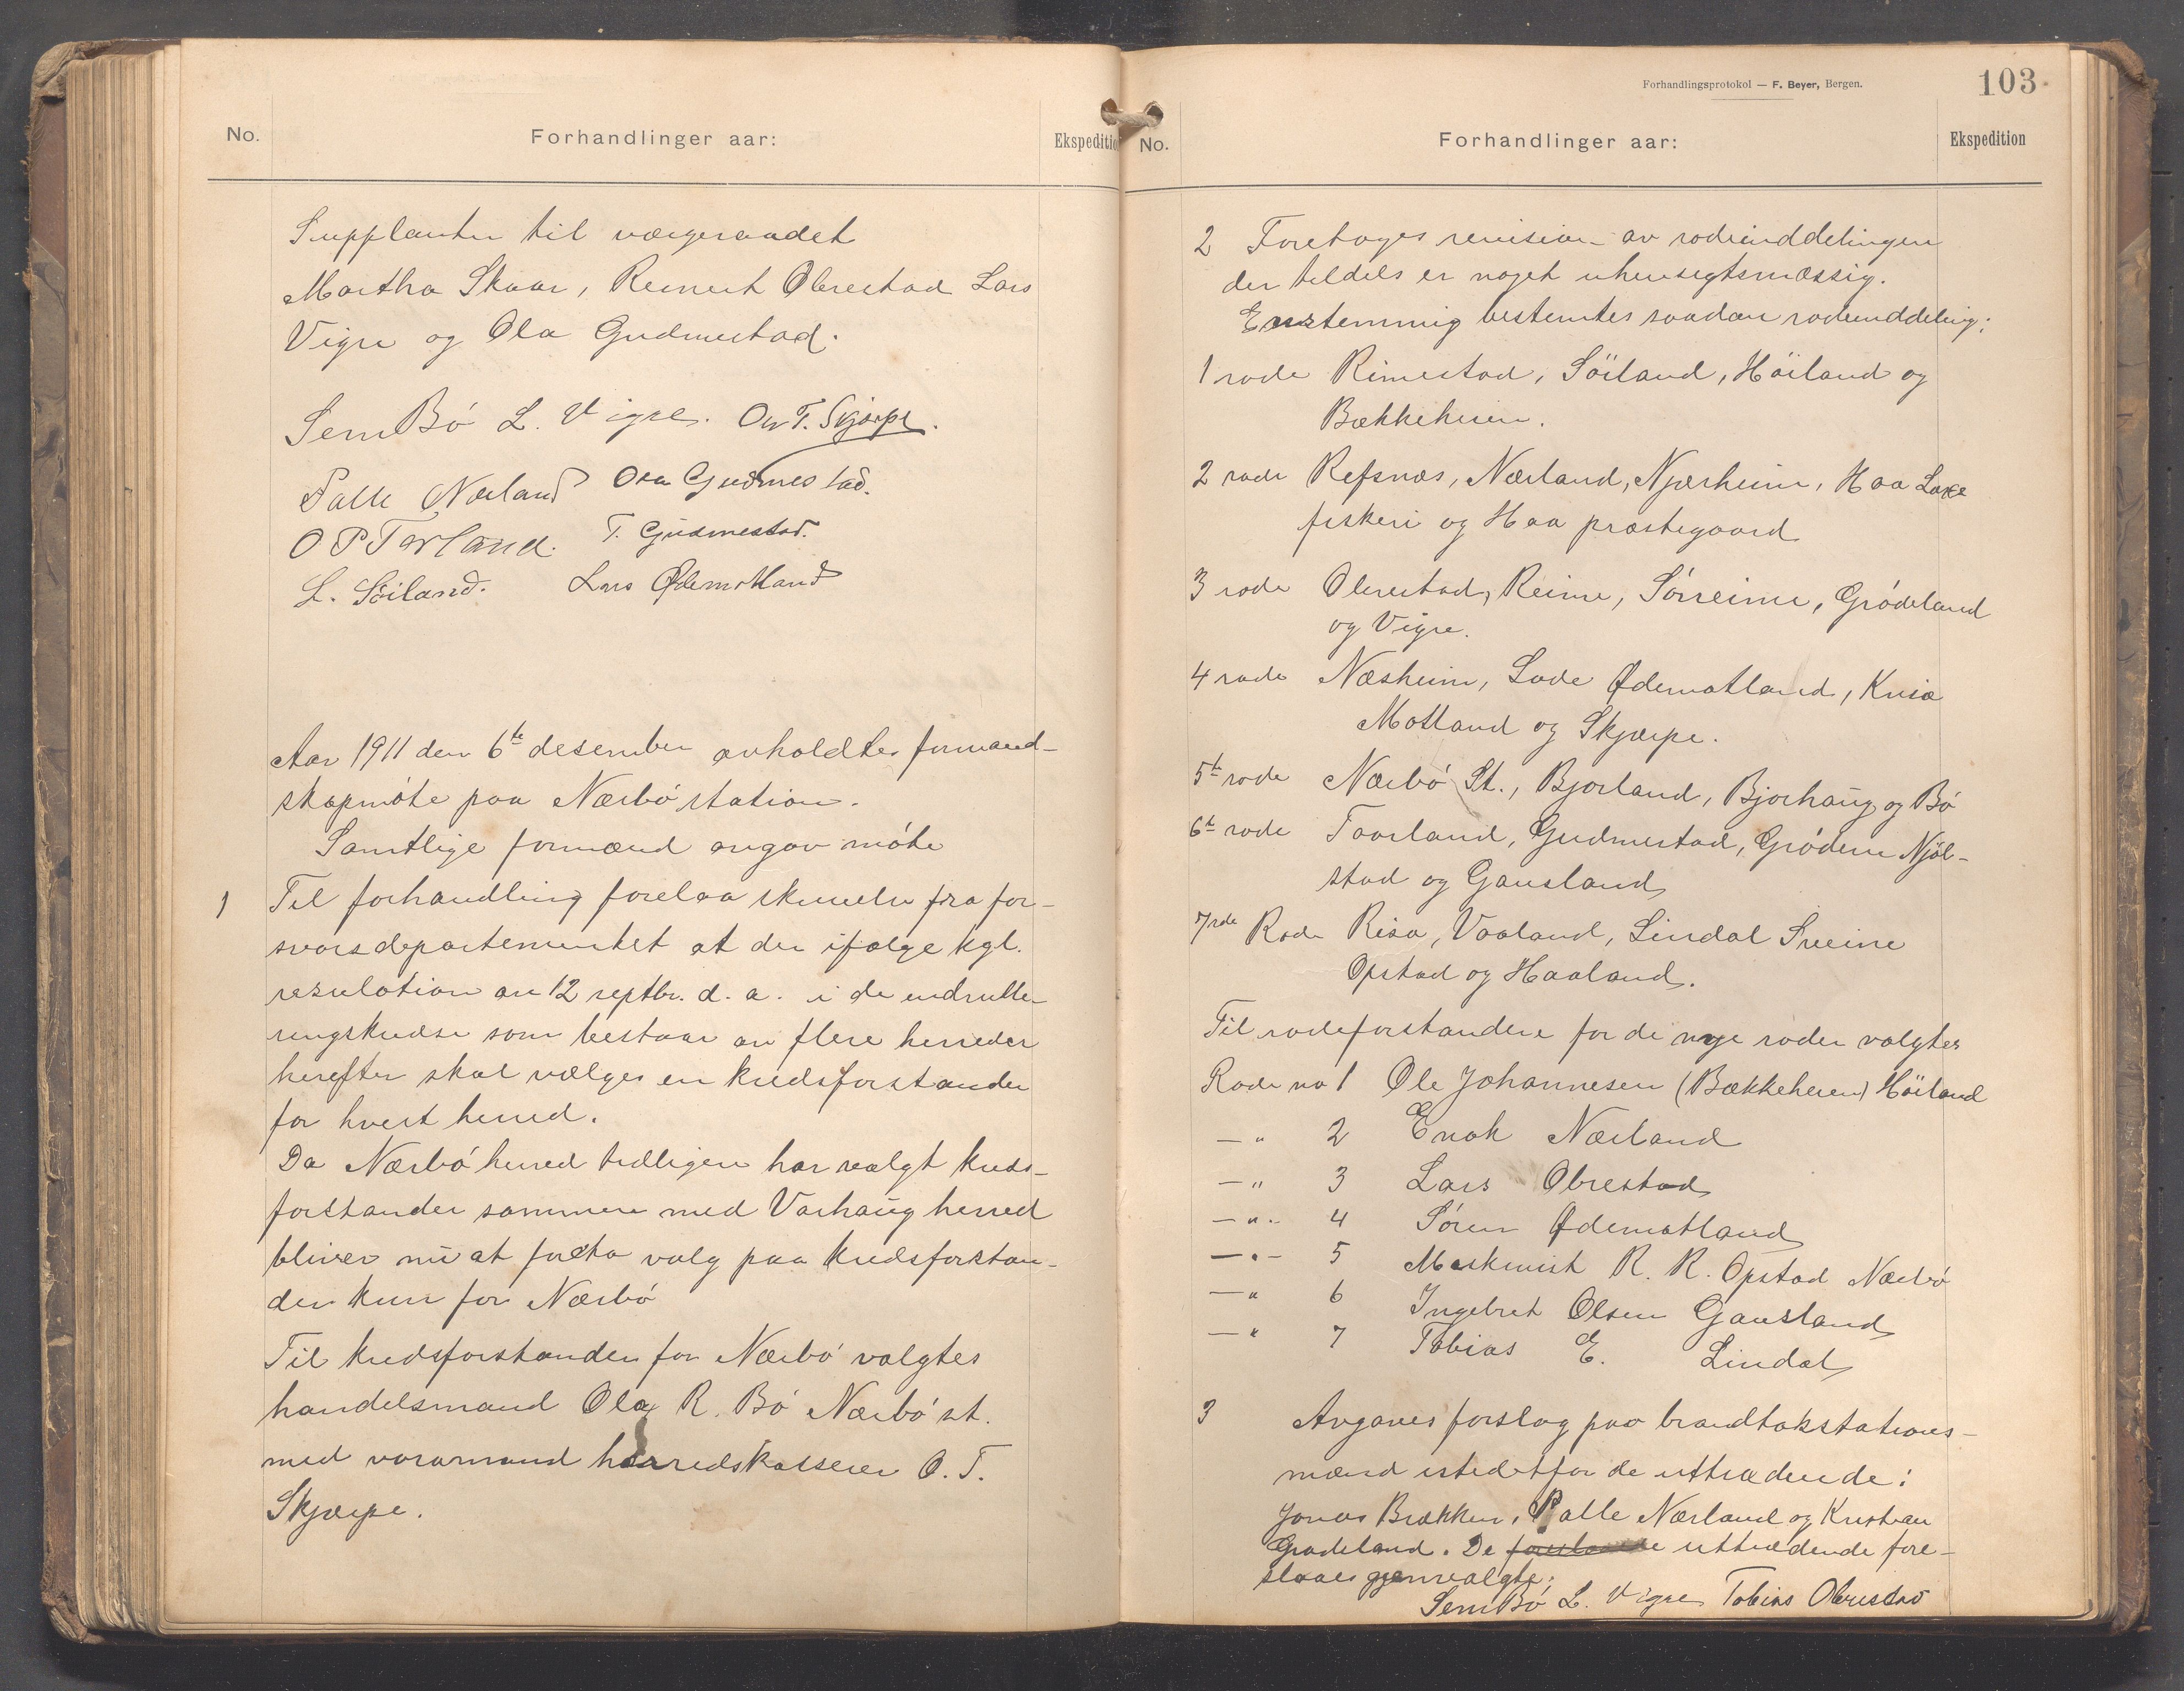 No. Forhandlinger aar: Ekspeditio
Supplanter til vergeraadet
Martha Skaar, Reinert Obrestad Lars
Vigre og Ola Gudmestad.
Sem Bö L. Vigre. Ov T. Skjærpe.
Palle Nærland Ola Gudmestad.
O P Torland. T. Gudmestad.
L. Söiland. Lars Ødemotland
Aar 1911 den 6te desember avholdtes formand-
skapmöte paa Nærbö station.
Samtlige formænd avgav möte
1 Til forhandling forelaa skrivelse fra for-
svarsdepartementet at der ifølge kgl.
resolution av 12 septbr. d. a. i de indrulle-
ringskredse som bestaar av flere herreder
herefter skal vælges en kredsforstander
for hvert herred.
Da Nærbö herred tidligere har valgt kreds-
forstander sammen med Varhaug herred
bliver nu at foreta valg paa kredsforstan-
der kun for Nærbö
Til kredsforstander for Nærbö valgtes
handelsmand Ola R. Bö Nærbö st.
med varamand herredskasserer O. T.
Skjærpe.
Forhandlingsprotokol — F. Beyer, Bergen.
103
No. Forhandlinger aar: Ekspedition
2 Foretoges revision av rodeinddelingen
der tildels er noget uhensigtsmæssig.
Enstemmig bestemtes saadan rodeinddeling:
1 rode Rimestad, Söiland, Höiland og
Bækkeheien.
2 rode Refsnæs, Nærland, Njærheim, Haa Laxe
fiskeri og Haa præstegaard
3 rode Obrestad, Reime, Sörreime, Grödeland
og Vigre.
4 rode Næsheim, Lode Ødemotland, Kvia
Motland og Skjærpe.
5te rode Nærbö St., Bjorland, Bjorhaug og Bö
6te rode Taarland, Gudmestad, Grödem Njöl-
stad og Gausland
7nde Rode Risa, Vaaland, Lindal Sveine
Opstad og Haaland.
Til rodeforstandere for de nye roder valgtes
Rode no 1 Ole Johannesen (Bækkeheien) Höiland
— " 2 Enok Nærland
— " 3 Lars Obrestad
— " - 4 Sören Ødemotland
— " - 5 Maskinist R. R. Opstad Nærbö
— " 6 Ingebret Olsen Gausland
— " 7 Tobias E. Lindal
3 Avgaves forslag paa brandtakstations-
mænd istedetfor de uttrædende:
Jonas Brækken, Palle Nærland og Kristian
Grödeland. De uttrædende fore-
slaaes gjenvalgte.
Sem Bö L. Vigre Tobias Obrestad